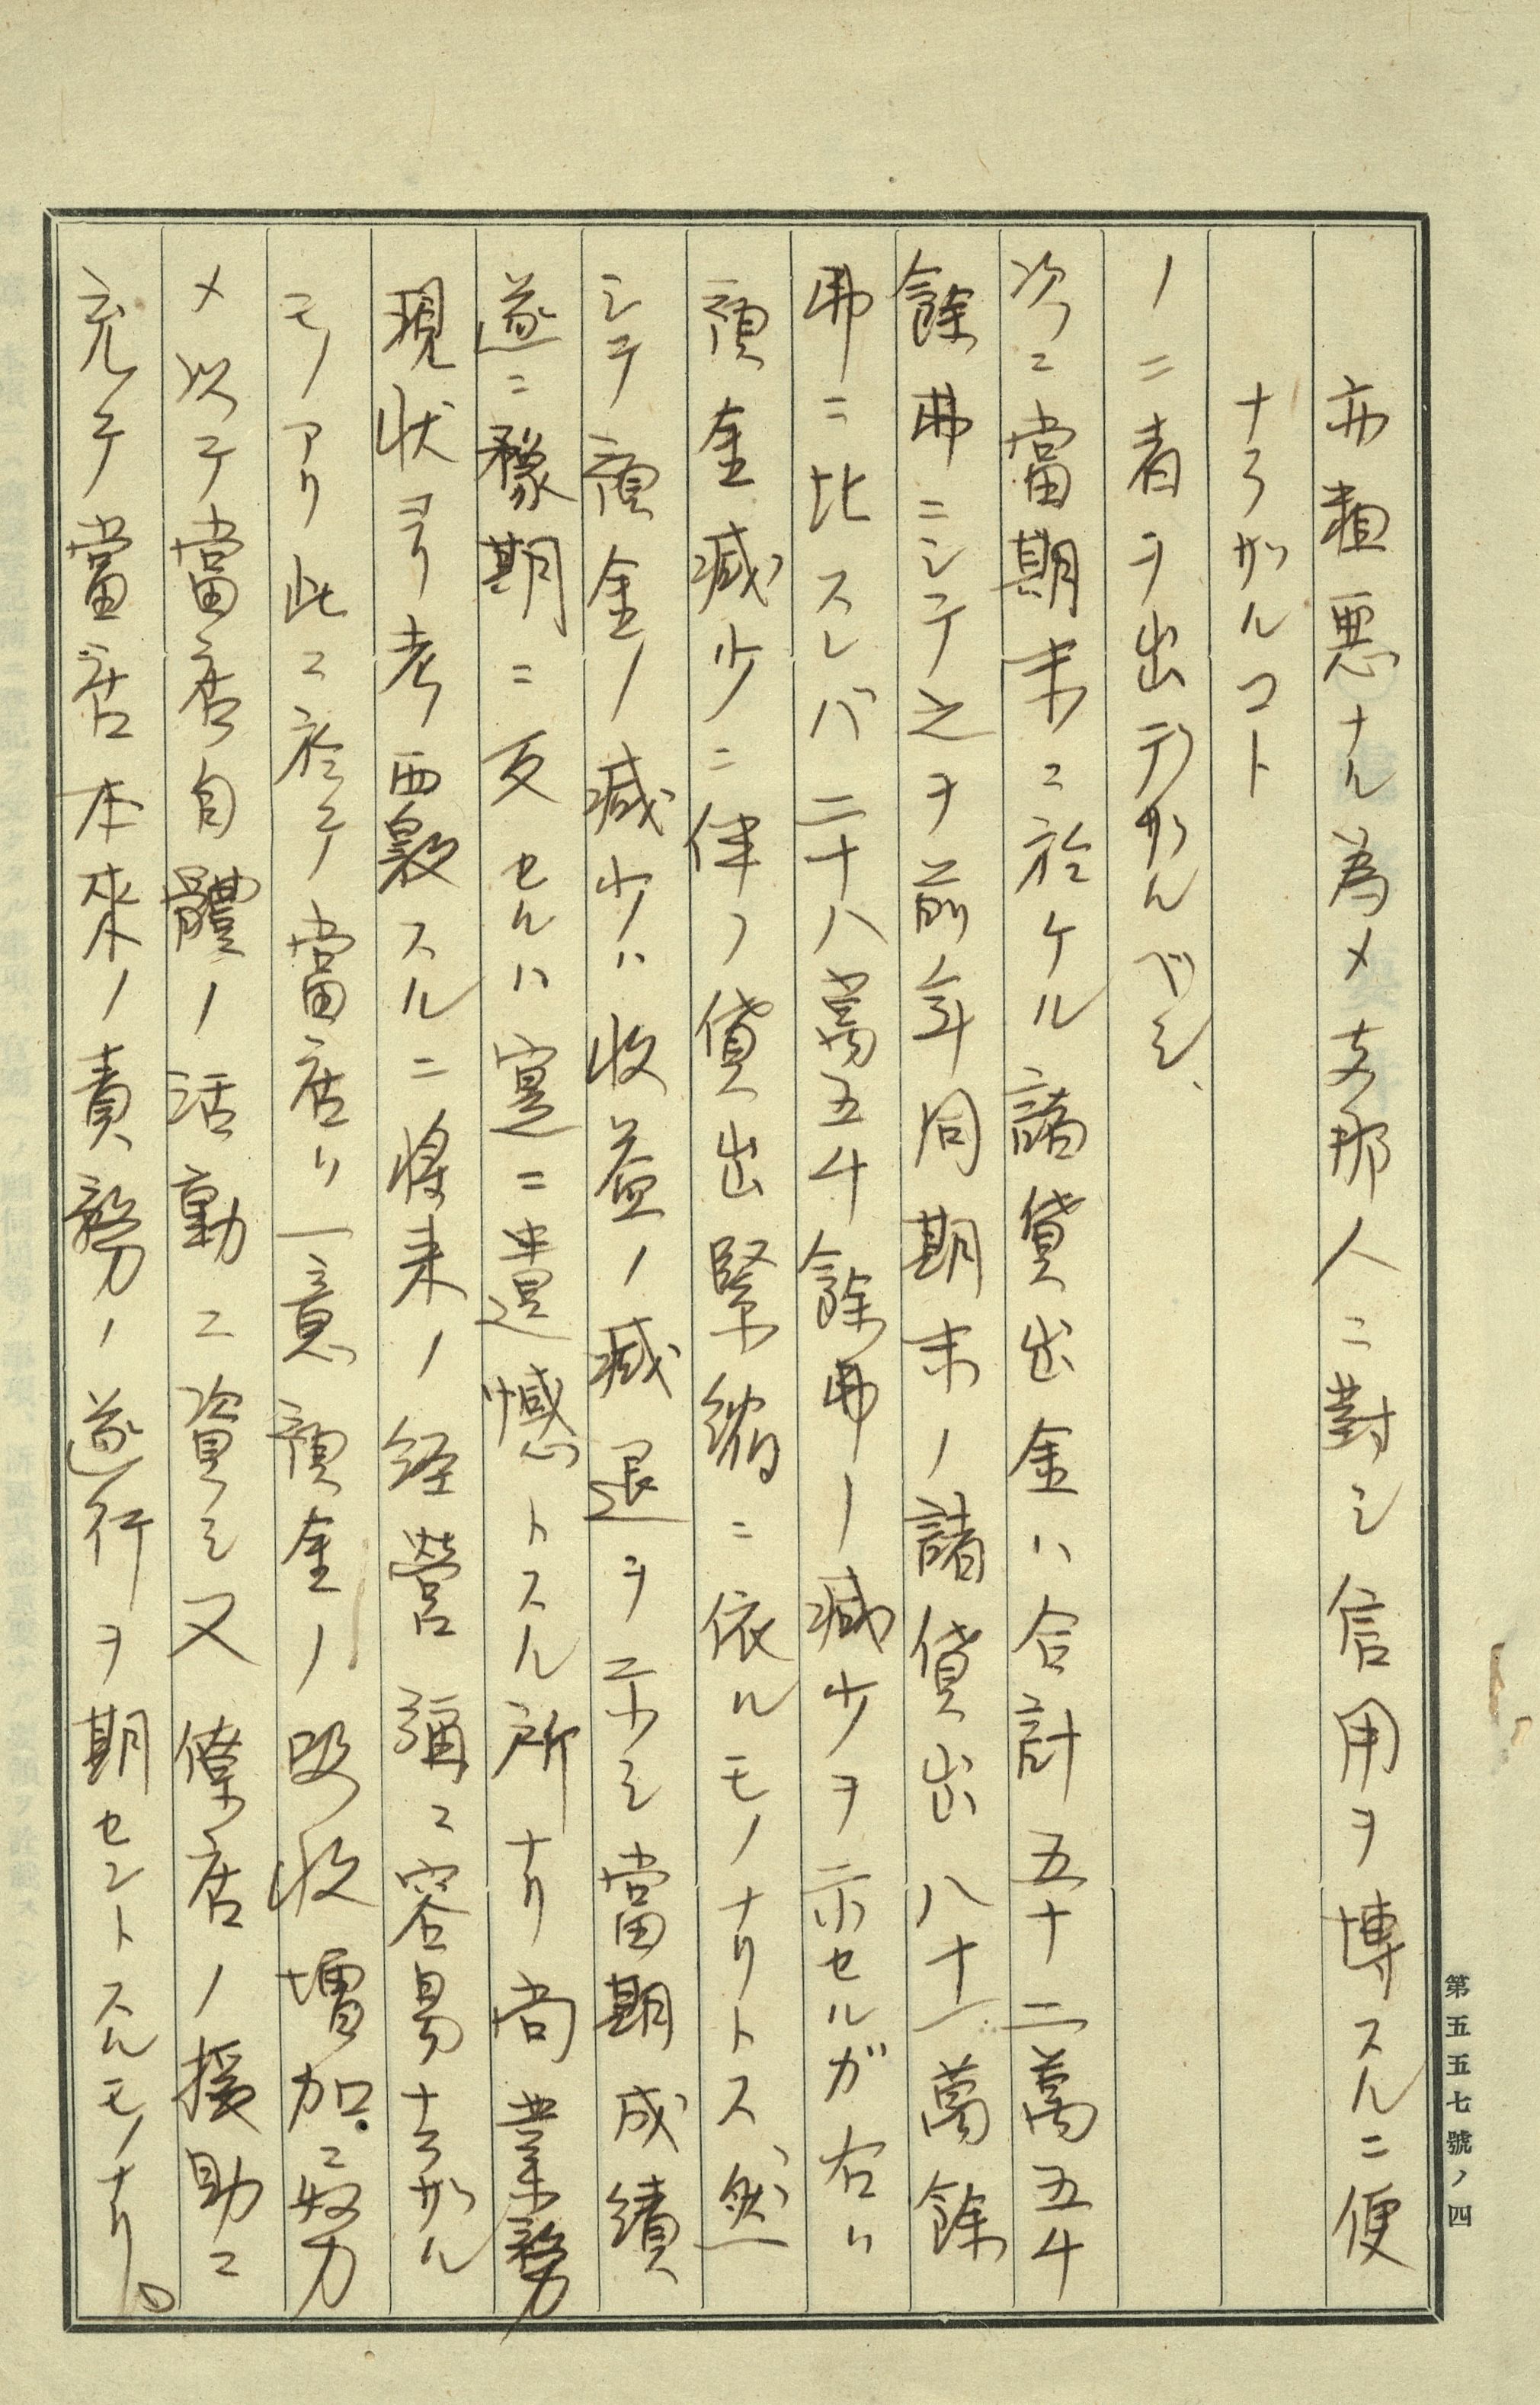 亦粗悪ナル為メ支那人ニ對シ信用ヲ博スルニ便
ナラザルコト
ノ二者ヲ出デザルベシ、
次ニ當期末ニ於ケル諸貸出金ハ合計五十二萬五千
餘弗ニシテ之ヲ前年同期末ノ諸貸出八十一萬餘
弗ニ比スレバ二十八萬五千餘弗ノ減少ヲ示セルガ右ハ
預金減少ニ伴フ貸出緊縮ニ依ルモノナリトス、然
シテ預金ノ減少ハ收益ノ減退ヲ示シ當期成績
遂ニ豫期ニ反セルハ寔ニ遺憾トスル所ナリ尚業務
現状ヨリ考覈スルニ將来ノ経営彌々容易ナラザル
モノアリ此ニ於テ當店ハ一意預金ノ吸收増加ニ努力
メ以テ當店自體ノ活動ニ資シ又僚店ノ援助ニ
充テ當店本來ノ責務ノ遂行ヲ期セントスルモノナリ。
第五五七號ノ四